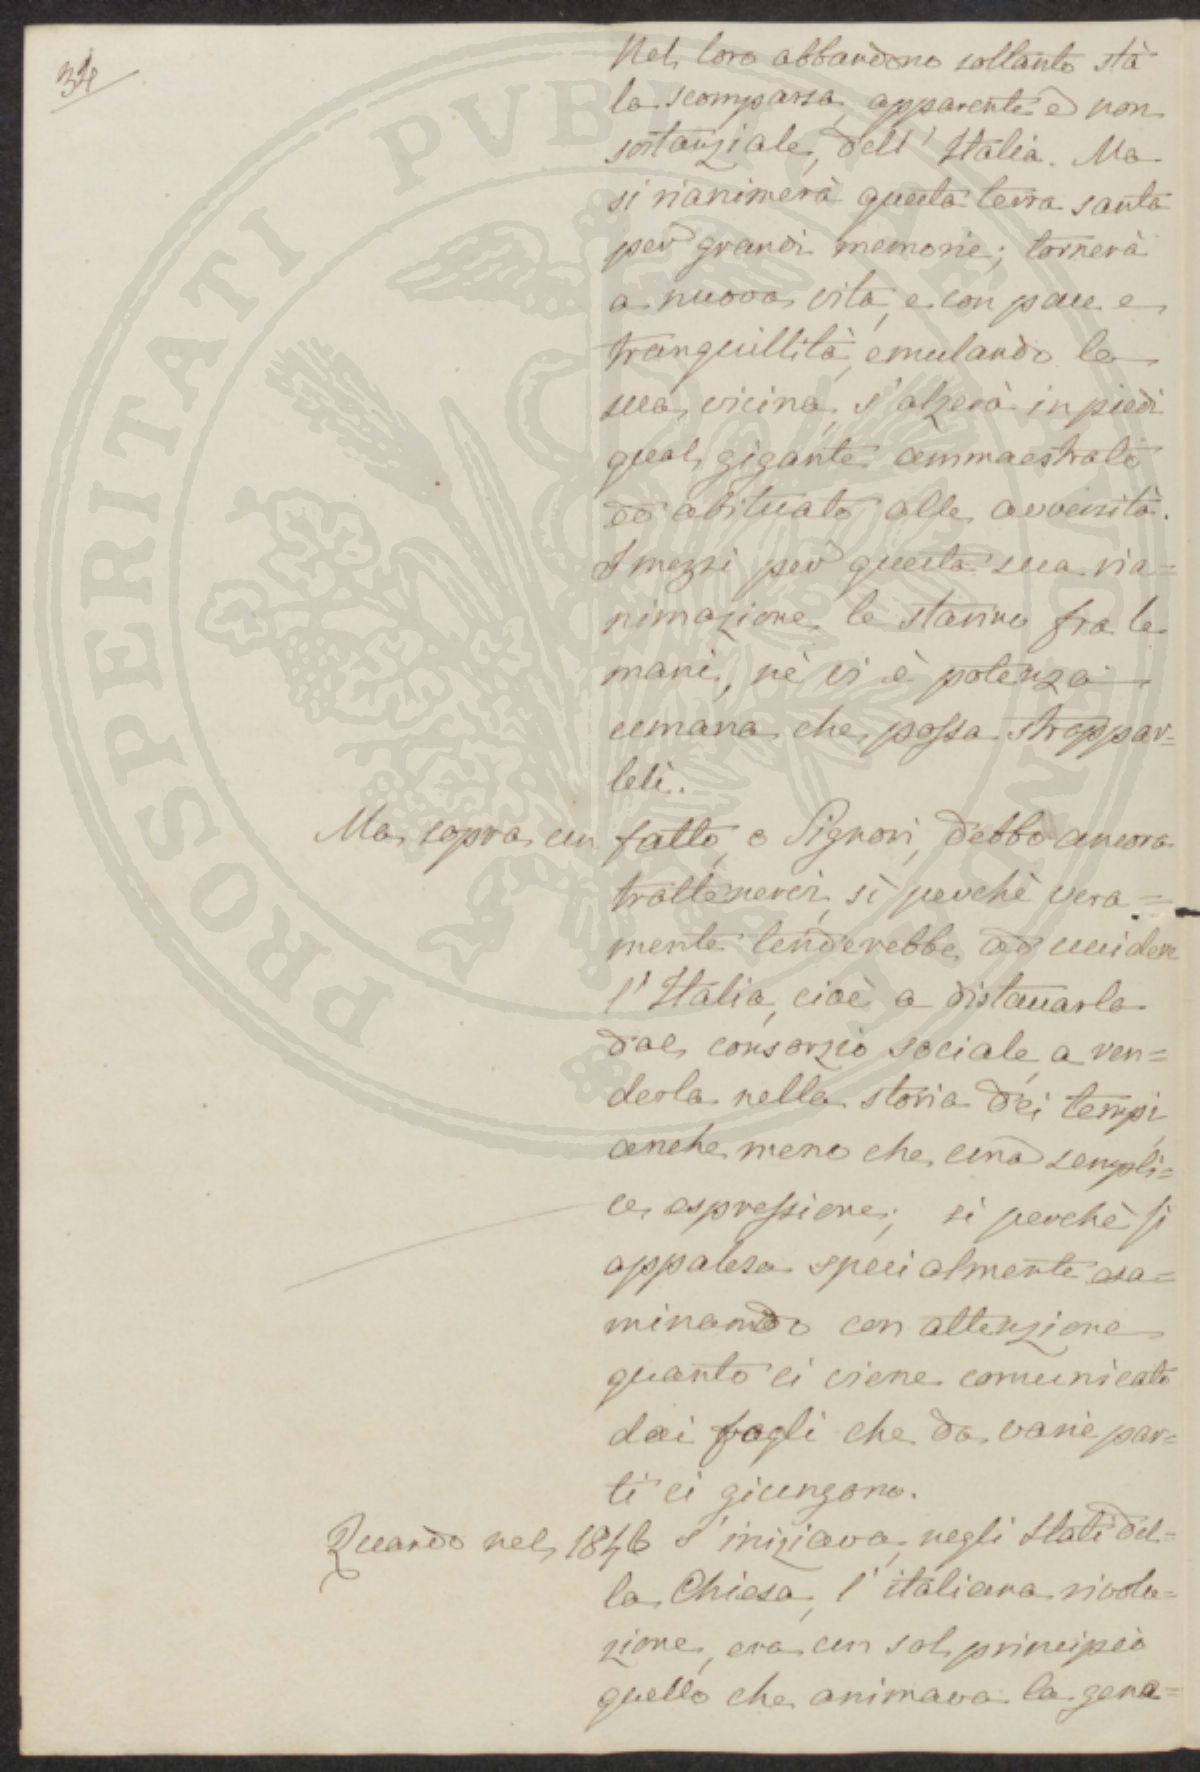 34
Nel loro abbandono soltanto stà
la scomparsa, apparente e non
sostanziale, dell'Italia. Ma
si rianimerà questa terra santa
per grandi memorie; tornerà
a nuova vita, e con pace e
tranquillità, emulando la
sua vicina, s'alzerà in piedi
qual gigante ammaestrato
ed abituato alle avversità.
I mezzi per questa sua ria=
nimazione le stanno fra le
mani, nè vi è potenza
umana che possa strappar=
leli.
Ma sopra un fatto, o Signori, debbo ancora
trattenervi, sì perchè vera=
mente tenderebbe ad uccidere
l'Italia, cioè a distaccarla
dal consorzio sociale, a ren=
derla nella storia dei tempi
anche meno che una sempli=
ce espressione; sì perchè si
appalesa specialmente esa=
minando con attenzione
quanto ci viene comunicato
dai fogli che da varie par=
ti ci giungono.
Quando nel 1846 s'iniziava, negli Stati del=
la Chiesa, l'italiana rivolu=
zione, era un sol principio
quello che animava la gene=
PROSPERITATI PVBLICAE